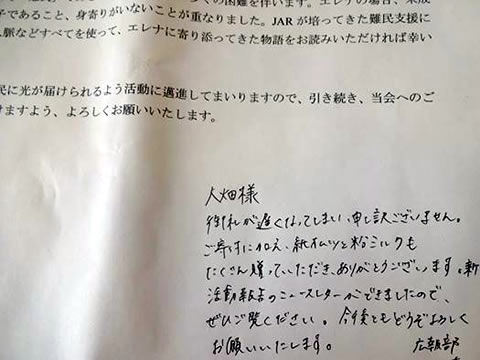 くの困難を伴います。エレナの場合、未成
子であること、身寄りがいないことが重なりました。JAR が培ってきた難民支援に
人脈などすべてを使って、エレナに寄り添ってきた物語をお読みいただければ幸い
民に光が届けられるよう活動に邁進してまいりますので、引き続き、当会へのご
けますよう、よろしくお願いいたします。
人畑様
御礼が遅くなってしまい、申し訳ございません。
ご寄付に加え、紙オムツと粉ミルクも
たくさん贈っていただき、ありがとうございます。新
活動報告のニュースレターができましたので、
ぜひご覧ください。今後ともどうぞよろしく
お願いいたします。 広報部